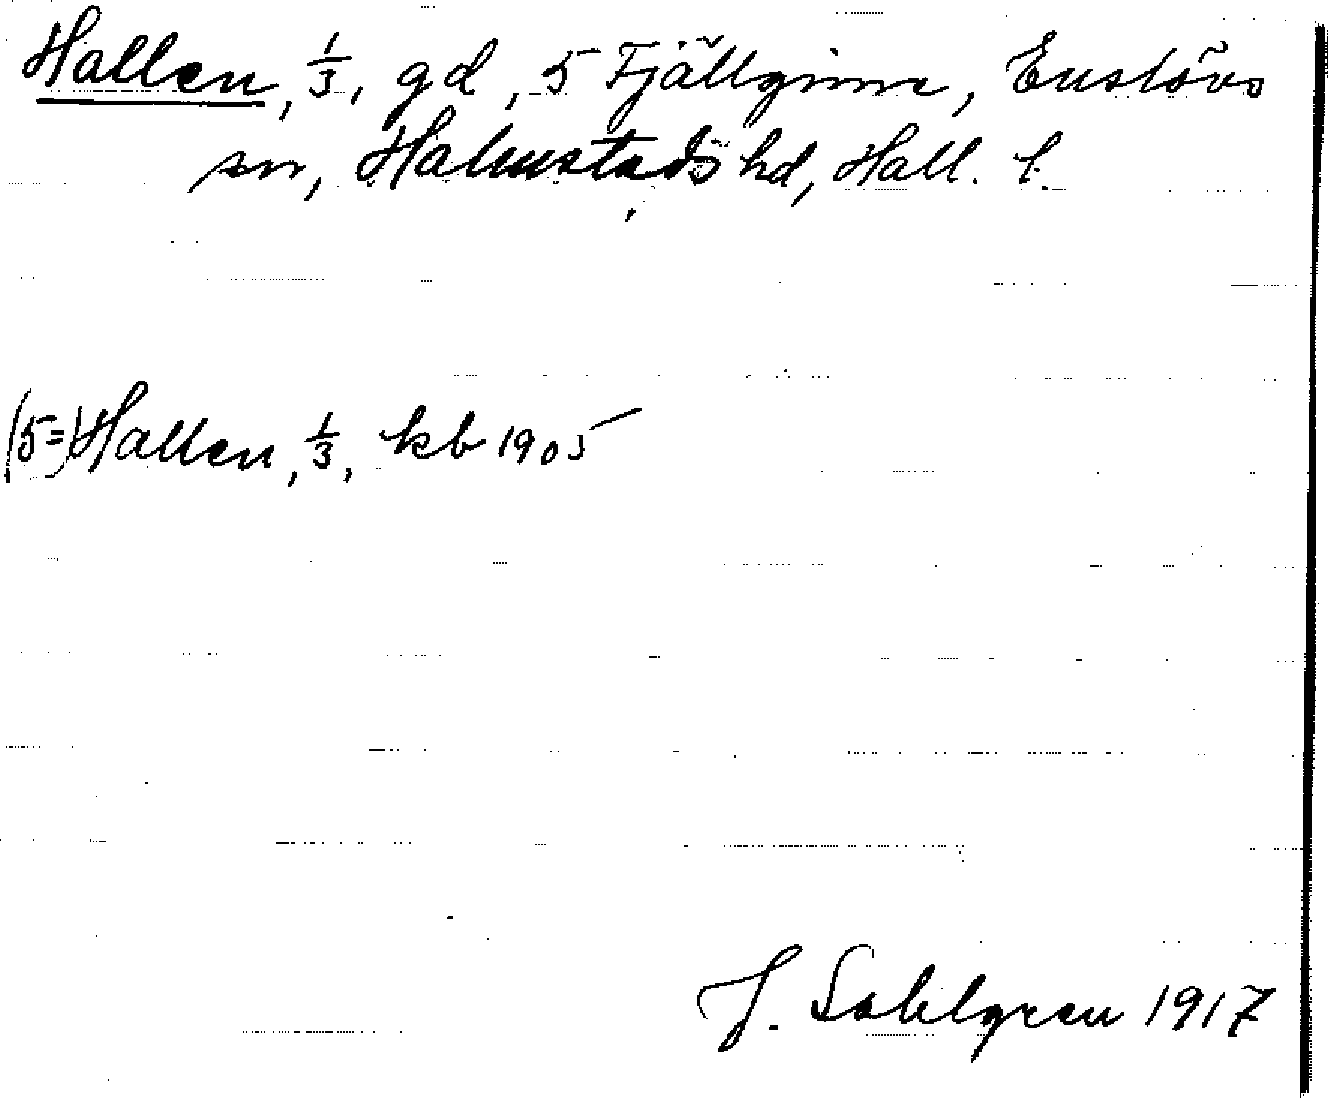 Hallen, 1/3, gd, 5 Fjällginne, Enslövs
sn, Halmstads hd, Hall. l.
(5=) Hallen, 1/3, kb 1905
J. Sahlgren 1917